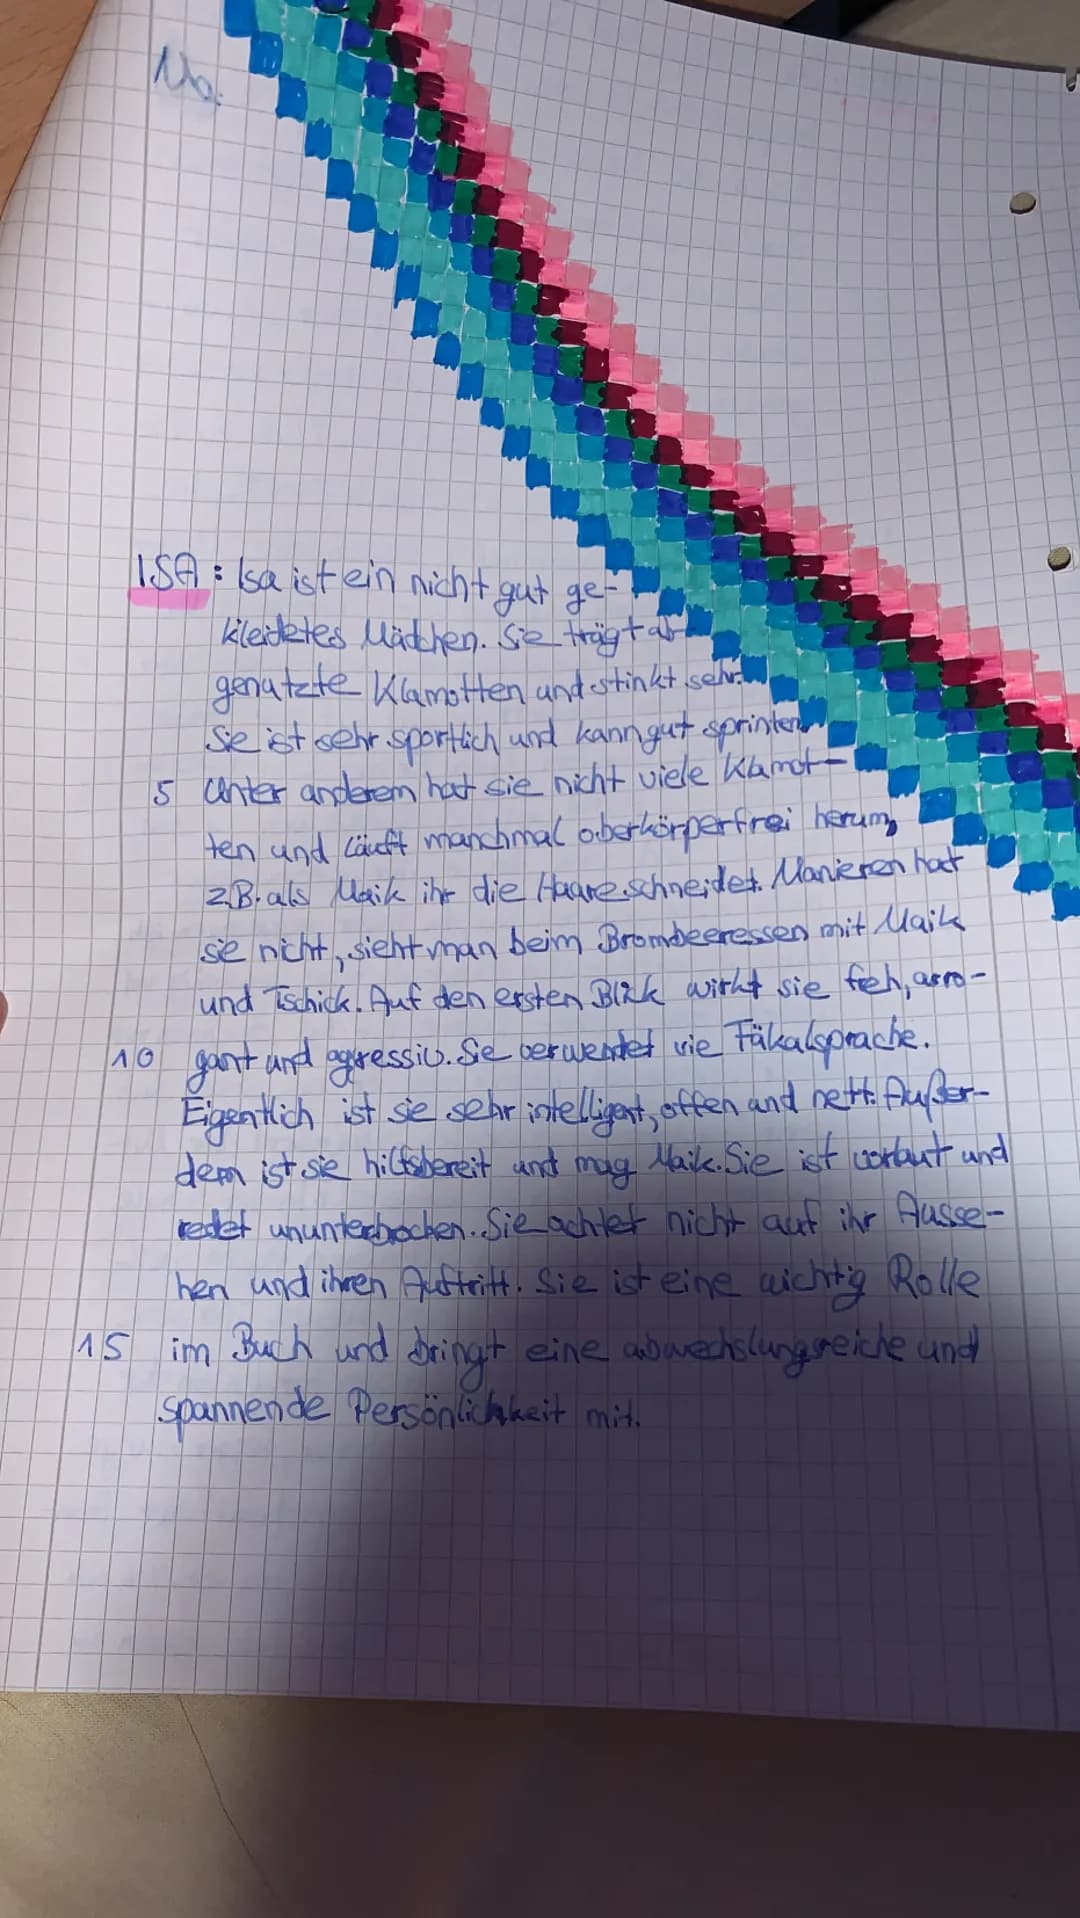 ISA: Isa ist ein nicht gut ge-
kleidetes Mädchen. Sie trägt ab-
genutzte Klamotten und stinkt sehr.
Sie ist sehr sportlich und kann gut sprinten.
5 Unter anderem hat sie nicht viele Klamot-
ten und läuft manchmal oberkörperfrei herum,
z.B. als Maik ihr die Haare schneidet. Manieren hat
sie nicht, sieht man beim Brombeeressen mit Maik
und Tschick. Auf den ersten Blick wirkt sie feh, arro-
10 gant und agressiv. Sie verwendet vie Fäkalsprache.
Eigentlich ist sie sehr intelligent, offen und nett. Außer-
dem ist sie hilfsbereit und mag Maik. Sie ist vorlaut und
redet ununterbrochen. Sie achtet nicht auf ihr Ausse-
hen und ihren Auftritt. Sie ist eine wichtig Rolle
15 im Buch und bringt eine abwechslungsreiche und
spannende Persönlichkeit mit.